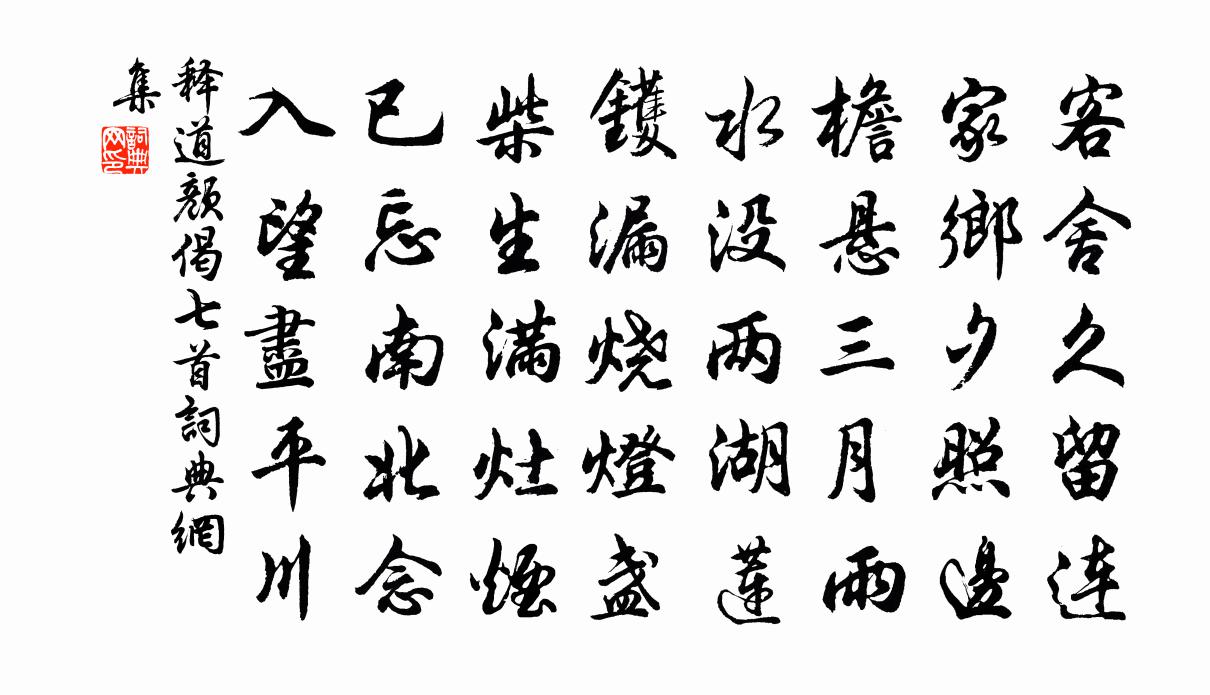 客舍久留連
家鄉夕照邊
檐悬三月雨
水没两湖蓮
鑊漏烧燈盏
柴生满灶煙
已忘南北念
入望盡平川
释道颜偈七首詞典網
集
詞典
网印